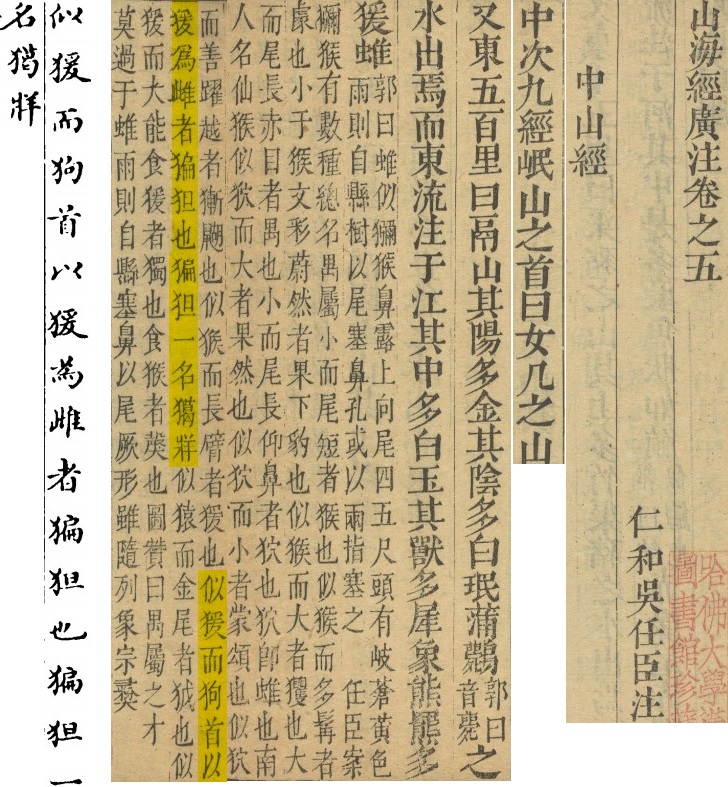 山海經廣注卷之五
哈佛大學
圖書館珍
仁和吳任臣注
中山經
中次九經岷山之首曰女几之山
又東五百里曰鬲山其陽多金其陰多白珉蒲鸏郭曰音薨之
水出焉而東流注于江其中多白玉其獸多犀象熊羆多
猨蜼郭曰蜼似獼猴鼻露上向尾四五尺頭有岐蒼黃色
雨則自縣樹以尾塞鼻孔或以兩指塞之 任臣案
獼猴有數種總名禺屬小而尾短者猴也似猴而多髯者
豦也小于猴文彩蔚然者果下豹也似猴而大者玃也大
而尾長赤目者禺也小而尾長仰鼻者狖也狖卽蜼也南
人名仙猴似狖而大者果然也似狖而小者蒙頌也似狖
而善躍越者獑也似猴而長臂者猨也似猨而狗首以
猨為雌者猵狙也猵狙一名獦牂似猿而金尾者狨也似
猨而大能食猨者獨也食猴者也圖贊曰禺屬之才
莫過于蜼雨則自縣塞鼻以尾厥形雖隨列象宗彝
似猨而狗首以猨為雌者猵狙也猵狙一
名獦牂